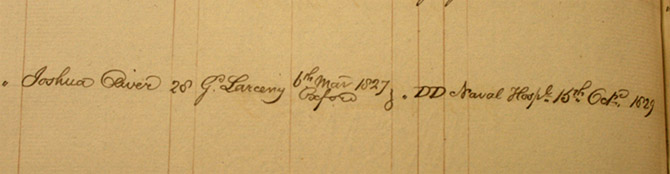 " Joshua River 28 G.d Larceny 6th Mar 1827 Oxford 7 . DD Naval Hospl. 15th Octr. 1829